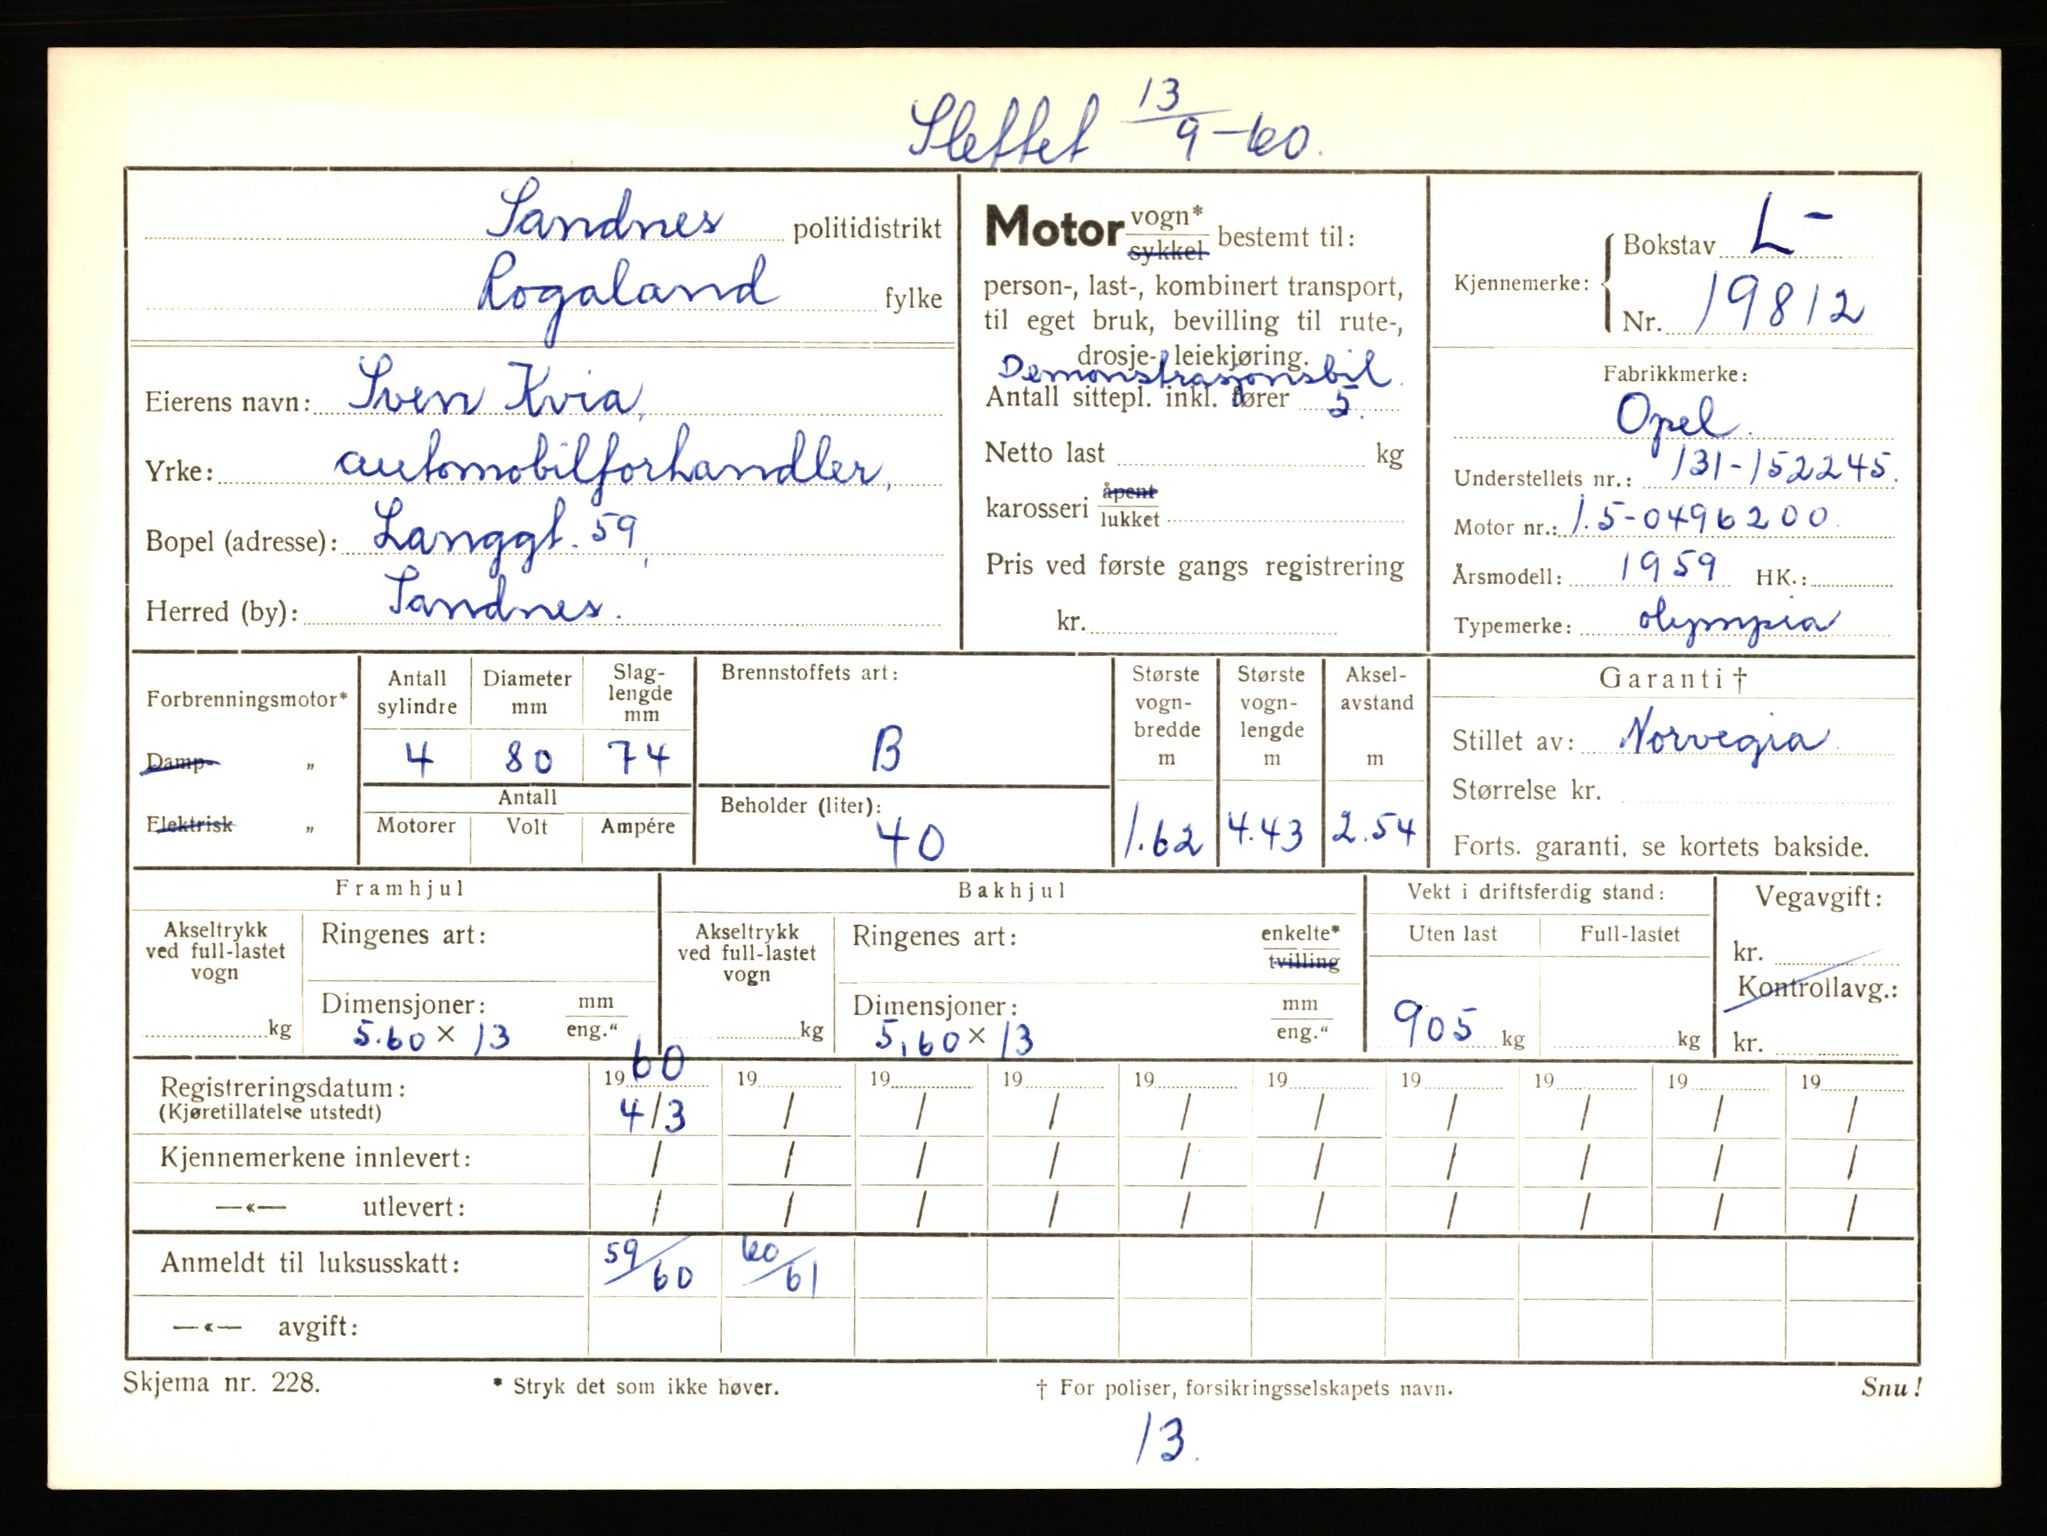 Slettet 13/9-60.
Sandnes politidistrikt
Rogaland fylke
Eierens navn: Sven Kvia,
Yrke: automobilforhandler,
Bopel (adresse): Langgt. 59,
Herred (by): Sandnes.
Motor vogn* sykkel bestemt til:
person-, last-, kombinert transport,
til eget bruk, bevilling til rute-,
drosje- leiekjøring.
Demonstrasjonsbil.
Antall sittepl. inkl. fører 5.
Netto last kg
karosseri åpent lukket
Pris ved første gangs registrering
kr.
Kjennemerke: Bokstav L-
Nr. 19812
Fabrikkmerke:
Opel.
Understellets nr.: 131-152245.
Motor nr.: 1.5-0496200.
Årsmodell: 1959 HK.:
Typemerke: olympia
Forbrenningsmotor*
Damp- „
Elektrisk „
Antall sylindre Diameter mm Slag-lengde mm
4 80 74
Antall
Motorer Volt Ampére
Brennstoffets art:
B
Beholder (liter):
40
Største vogn-bredde m
1.62
Største vogn-lengde m
4.43
Aksel-avstand m
2.54
Garanti †
Stillet av: Norvegia.
Størrelse kr.
Forts. garanti, se kortets bakside.
Framhjul
Akseltrykk
ved full-lastet
vogn
kg
Ringenes art:
Dimensjoner: mm
5.60 × 13 eng."
Bakhjul
Akseltrykk
ved full-lastet
vogn
kg
Ringenes art: enkelte*
tvilling
Dimensjoner: mm
5,60 × 13 eng."
Vekt i driftsferdig stand:
Uten last Full-lastet
905 kg kg
Vegavgift:
kr.
Kontrollavg.:
kr.
Registreringsdatum: 1960 19 19 19 19 19 19 19 19 19
(Kjøretillatelse utstedt) 4/3 / / / / / / / / /
Kjennemerkene innlevert: / / / / / / / / / /
—«— utlevert: / / / / / / / / / /
Anmeldt til luksusskatt: 59/60 60/61
—«— avgift:
Skjema nr. 228. * Stryk det som ikke høver. † For poliser, forsikringsselskapets navn. Snu!
13.